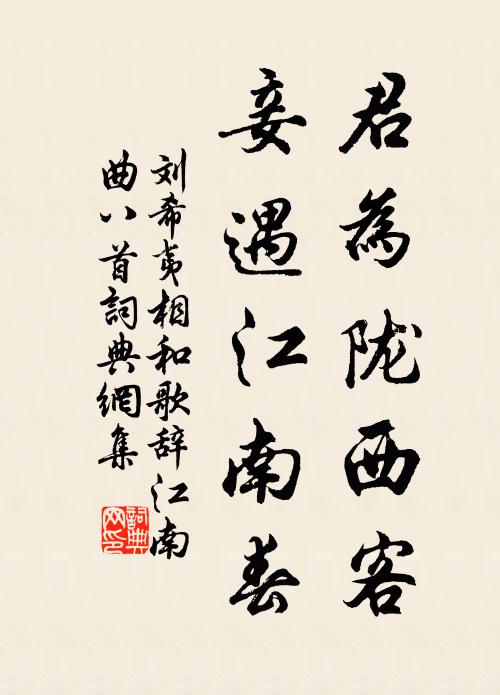 君為陇西客
妾遇江南春
刘希夷相和歌辞江南
曲八首詞典網集
詞典
网印